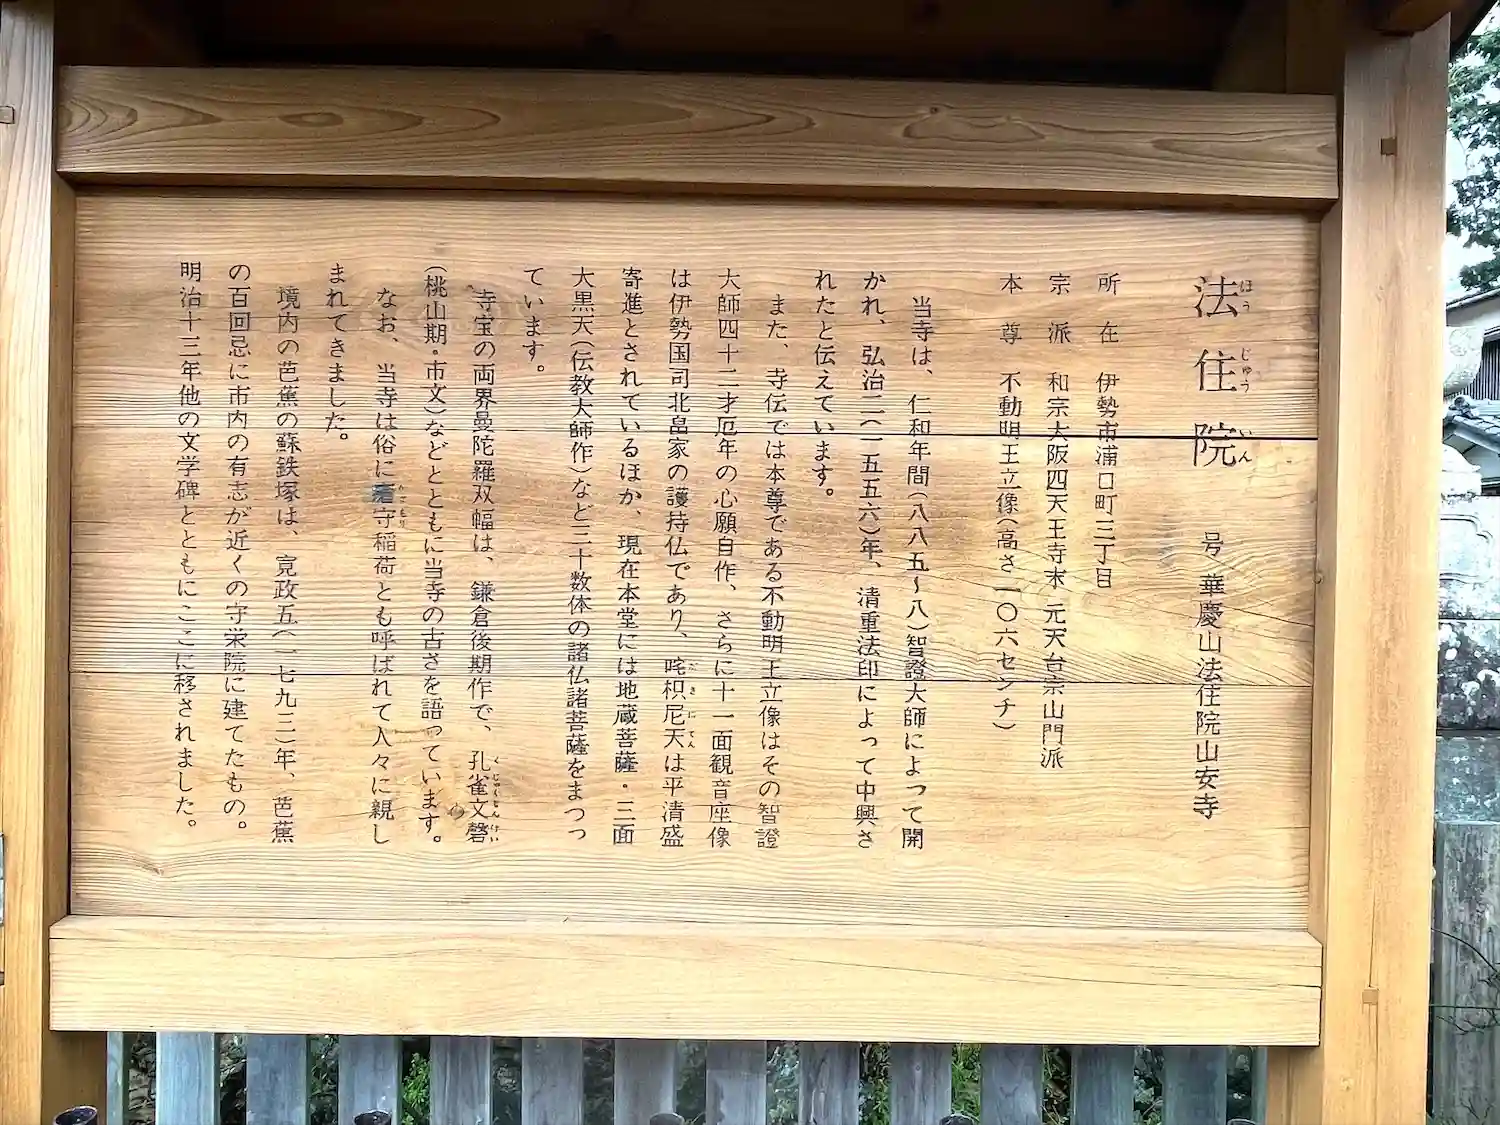 法住院 号 華慶山法住院山安寺
ほう じゅう いん
所在 伊勢市浦口町三丁目
宗派 和宗大阪四天王寺末 元天台宗山門派
本尊 不動明王立像(高さ一〇六センチ)
当寺は、仁和年間(八八五〜八)智證大師によって開
かれ、弘治二(一五五六)年、清重法印によって中興さ
れたと伝えています。
また、寺伝では本尊である不動明王立像はその智證
大師四十二才厄年の心願自作、さらに十一面観音座像
は伊勢国司北畠家の護持仏であり、咤枳尼天は平清盛
だ き に てん
寄進とされているほか、現在本堂には地蔵菩薩・三面
大黒天(伝教大師作)など三十数体の諸仏諸菩薩をまつっ
ています。
寺宝の両界曼陀羅双幅は、鎌倉後期作で、孔雀文磬
くじゃくもんけい
(桃山期・市文)などとともに当寺の古さを語っています。
なお、当寺は俗に守稲荷とも呼ばれて人々に親し
まれてきました。
境内の芭蕉の蘇鉄塚は、寛政五(一七九三)年、芭蕉
の百回忌に市内の有志が近くの守栄院に建てたもの。
明治十三年他の文学碑とともにここに移されました。